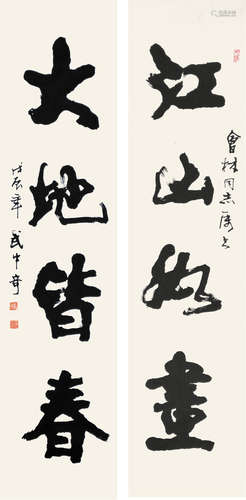 江山如畫
會林同志屬正
大地皆春
戊辰年 武中奇